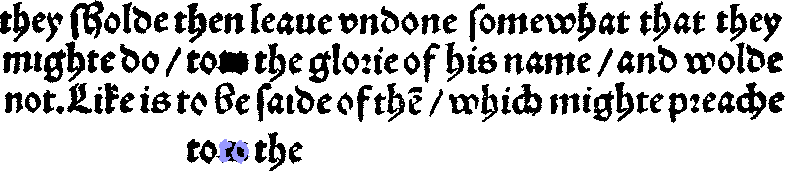 they sholde then leaue vndone somewhat that they
mighte do / to the glorie of his name / and wolde
not. Like is to be saide of thē / which mighte preache
to to the